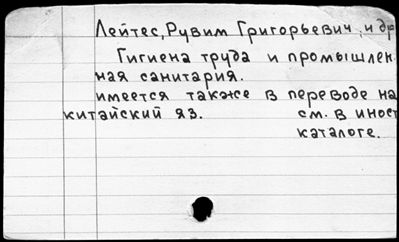 Лейтес, Рувим Григорьевич, и др
Гигиена труда и промышлен-
ная санитария.
имеется также в переводе на
китайский яз. см. в иност
каталоге.